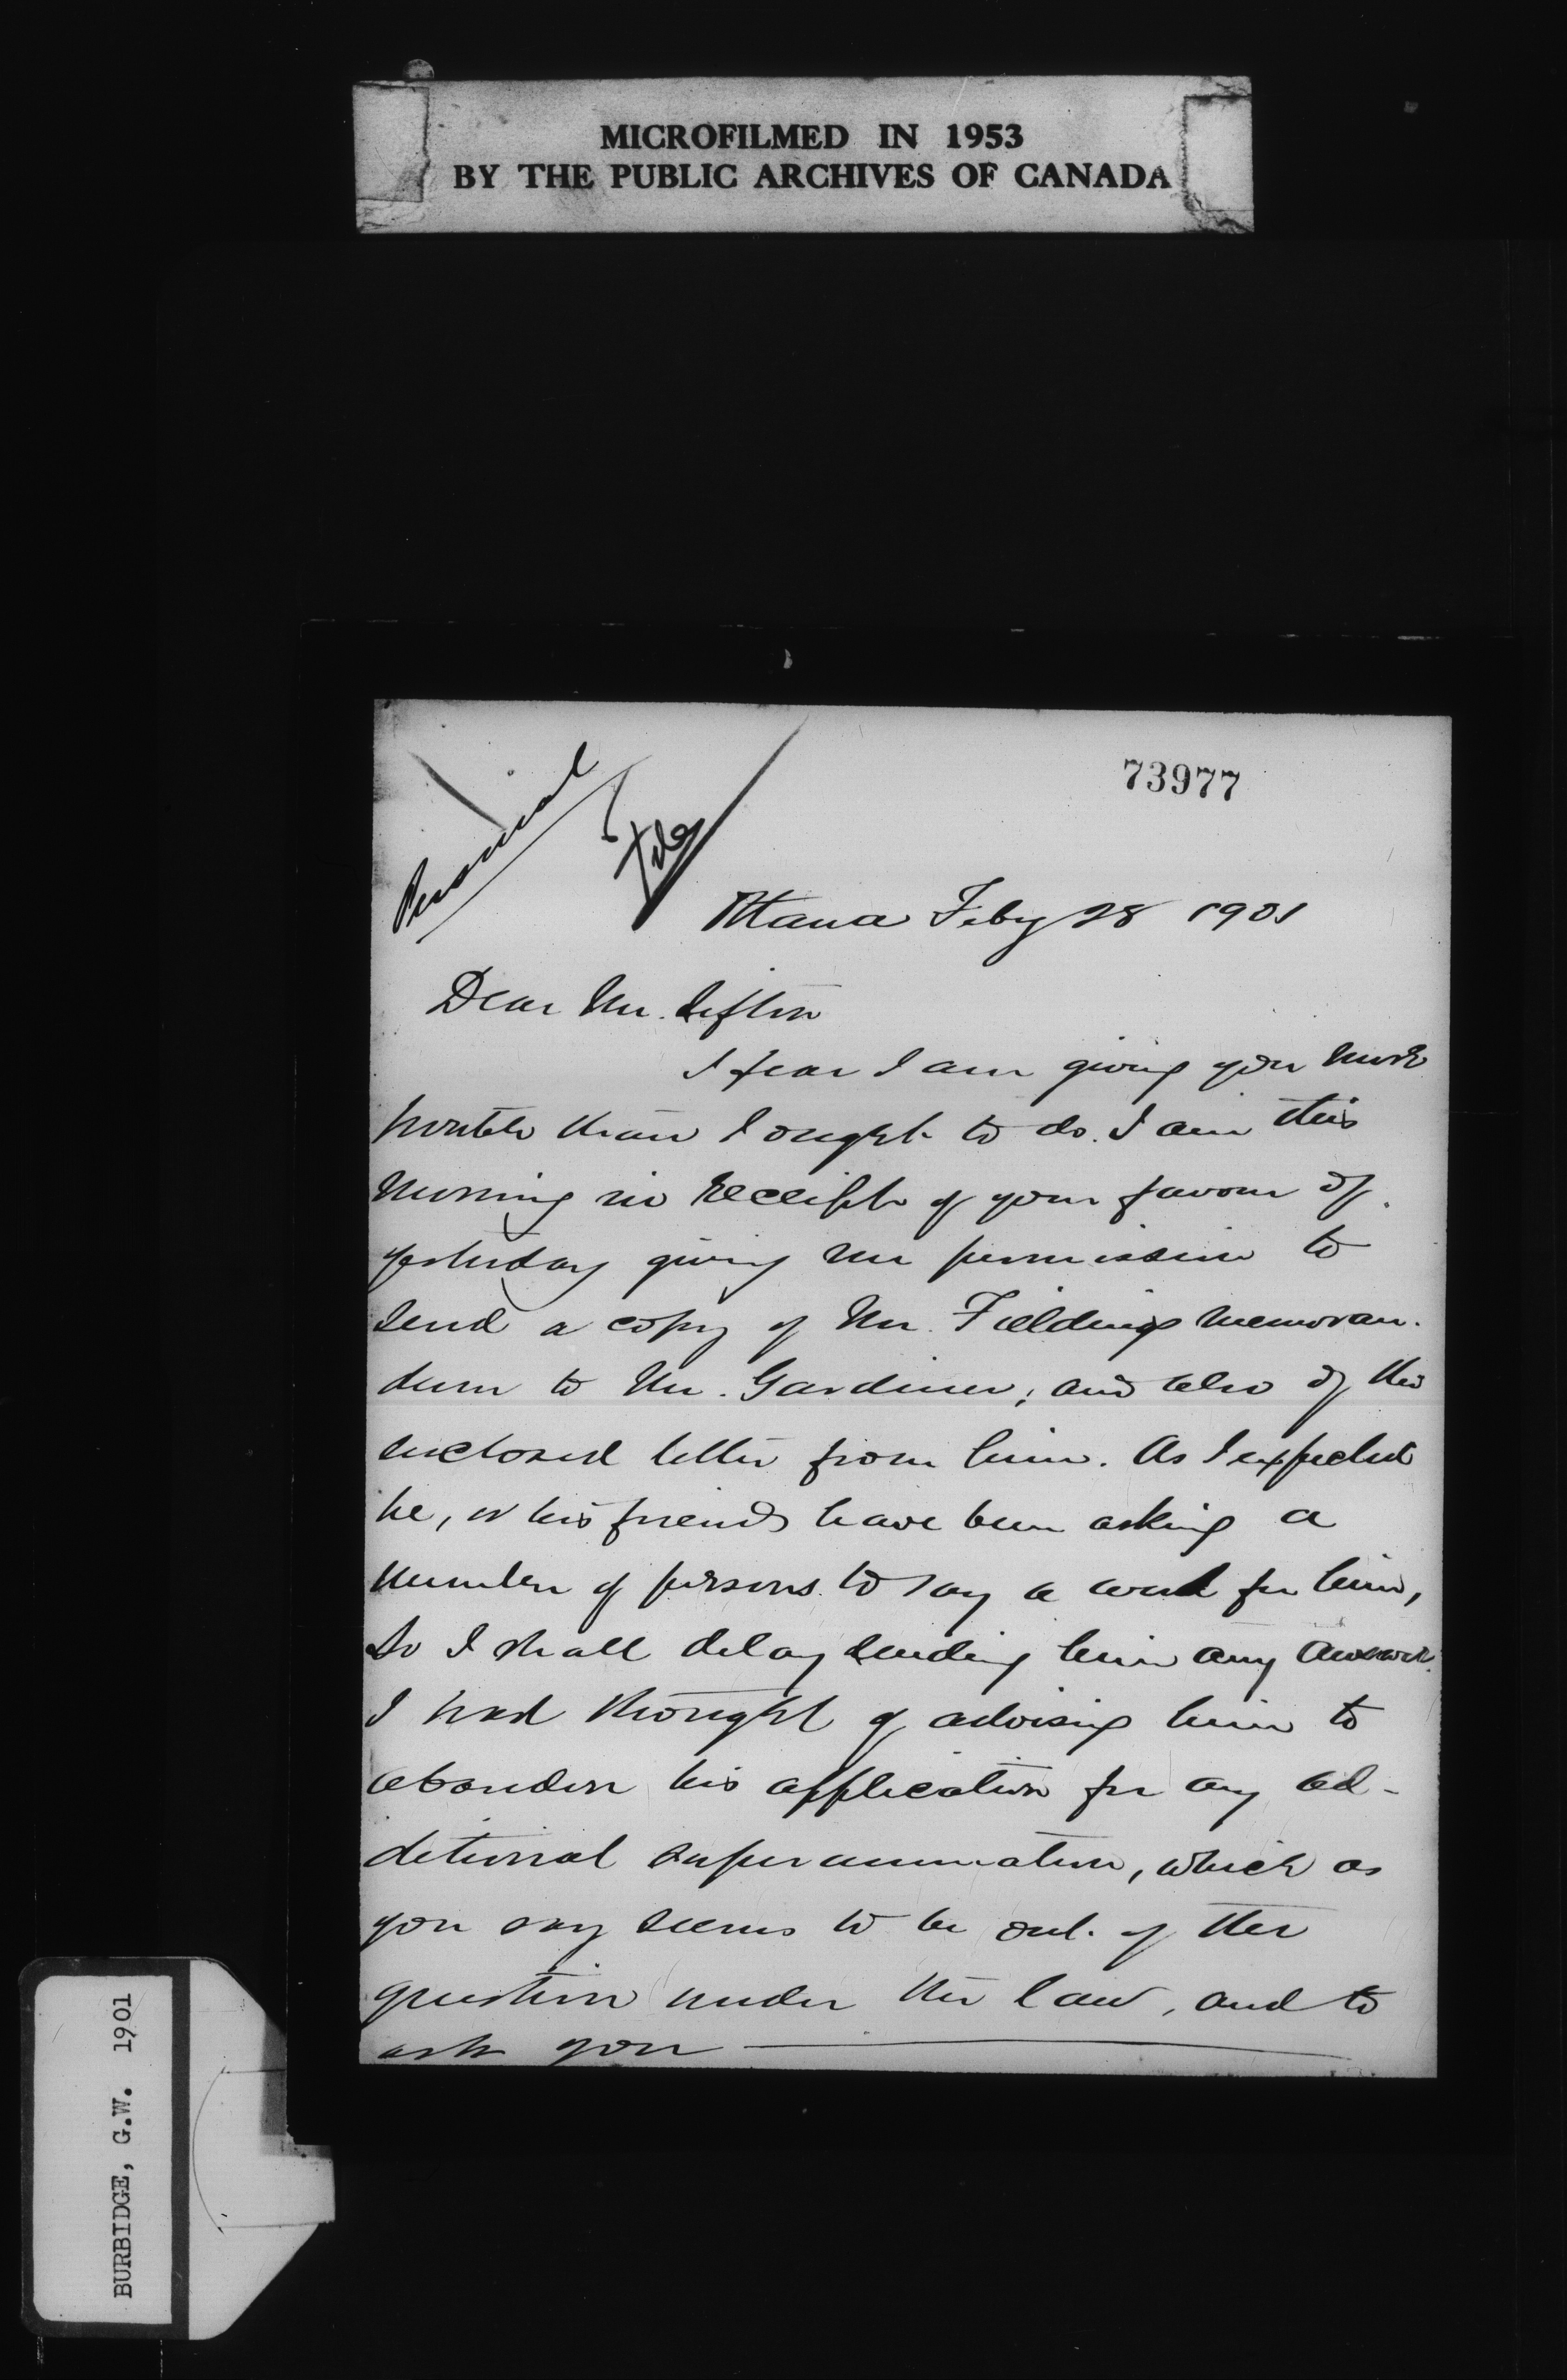 MICROFILMED IN 1953
BY THE PUBLIC ARCHIVES OF CANADA
73977
Personal
File
Ottawa Feby 28 1901
Dear Mr. Sifton
I fear I am giving you more
trouble than I ought to do. I am this
morning in receipt of your favour of
yesterday giving me permission to
send a copy of Mr. Fieldings memoran-
dum to Mr. Gardiner; and also of the
enclosed letter from him. As I expected
he, or his friends have been asking a
number of persons to say a word for him,
so I shall delay sending him any answer.
I had thought of advising him to
abandon his application for any ad-
ditional superannuation, which as
you say seems to be out of the
question under the law, and to
ask you
BURBIDGE, G.W. 1901